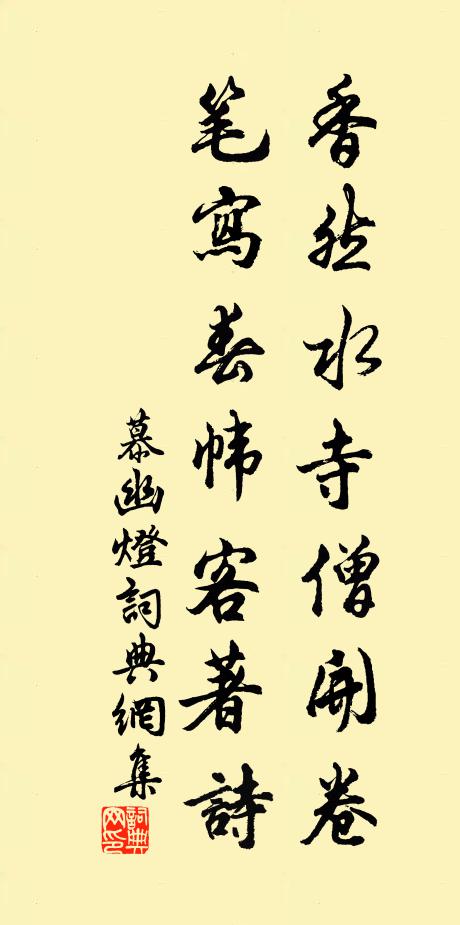 香然水寺僧開卷
笔寫春帏客著詩
慕幽燈詞典網集
詞典網印